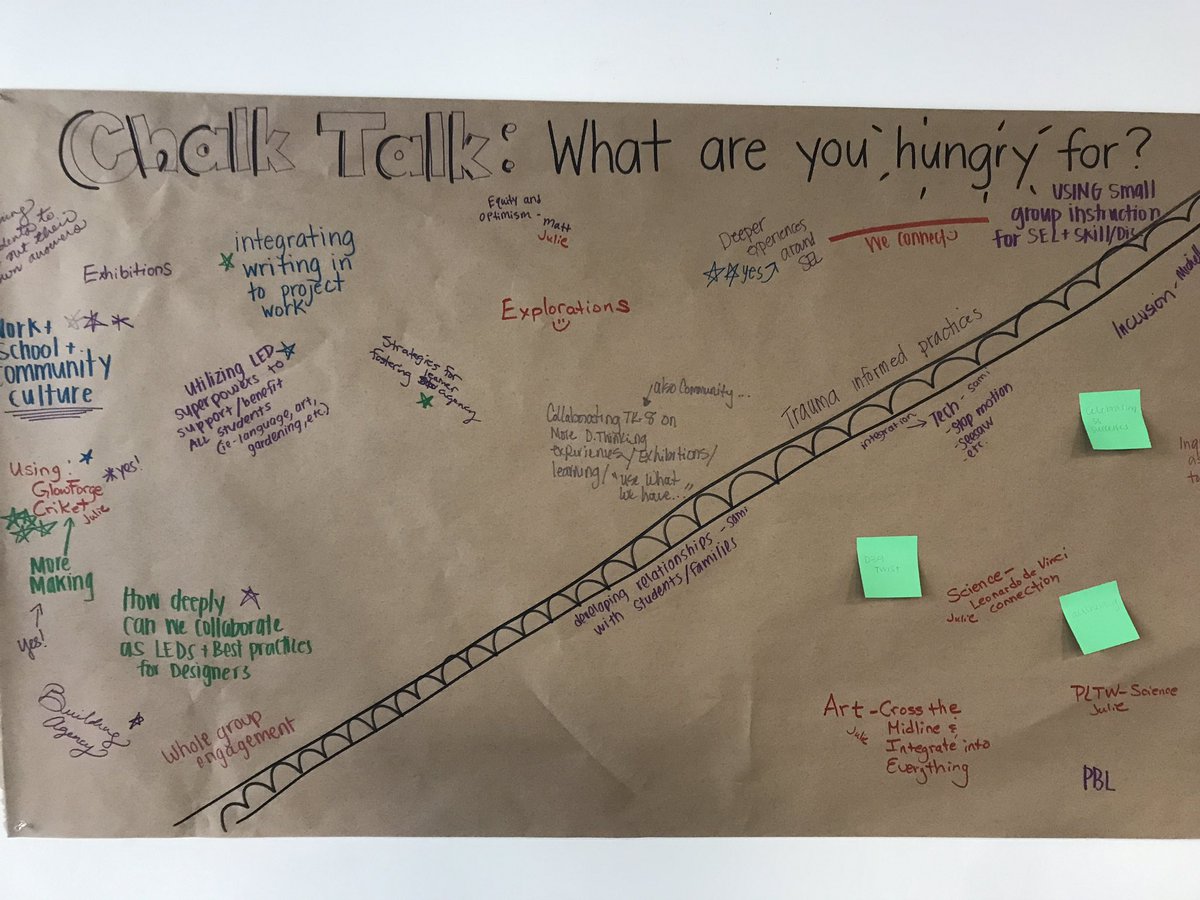 Chalk Talk: What are you hungry for?
own answers
Exhibitions
integrating
writing in
to project
work
Equity and
optimism -
Matt
Julie
Deeper
experiences
around
SEL
yes
We connect
USING Small
group instruction
for SEL + Skill/Dis
Explorations
School +
culture
Utilizing LED
superpowers to
support/benefit
ALL students
(ie-language, art,
gardening, etc)
Strategies for
learner
fostering
agency
also Community...
Collaborating TK-8 on
More D.Thinking
experiences/Exhibitions/
learning/"use what
we have..."
Trauma informed practices
integration
Tech - sami
- stop motion
- seesaw
- etc.
Inclusion -
yes!
Using:
GlowForge
Criket
Julie
More
Making
Yes!
How deeply
can we collaborate
as LEDs + Best practices
for Designers
developing relationships - sami
with students/families
Building
Agency
Whole group
engagement
Science -
Leonardo de Vinci
connection
Julie
Art - Cross the
Julie
Midline &
Integrate into
Everything
PLTW - Science
Julie
PBL